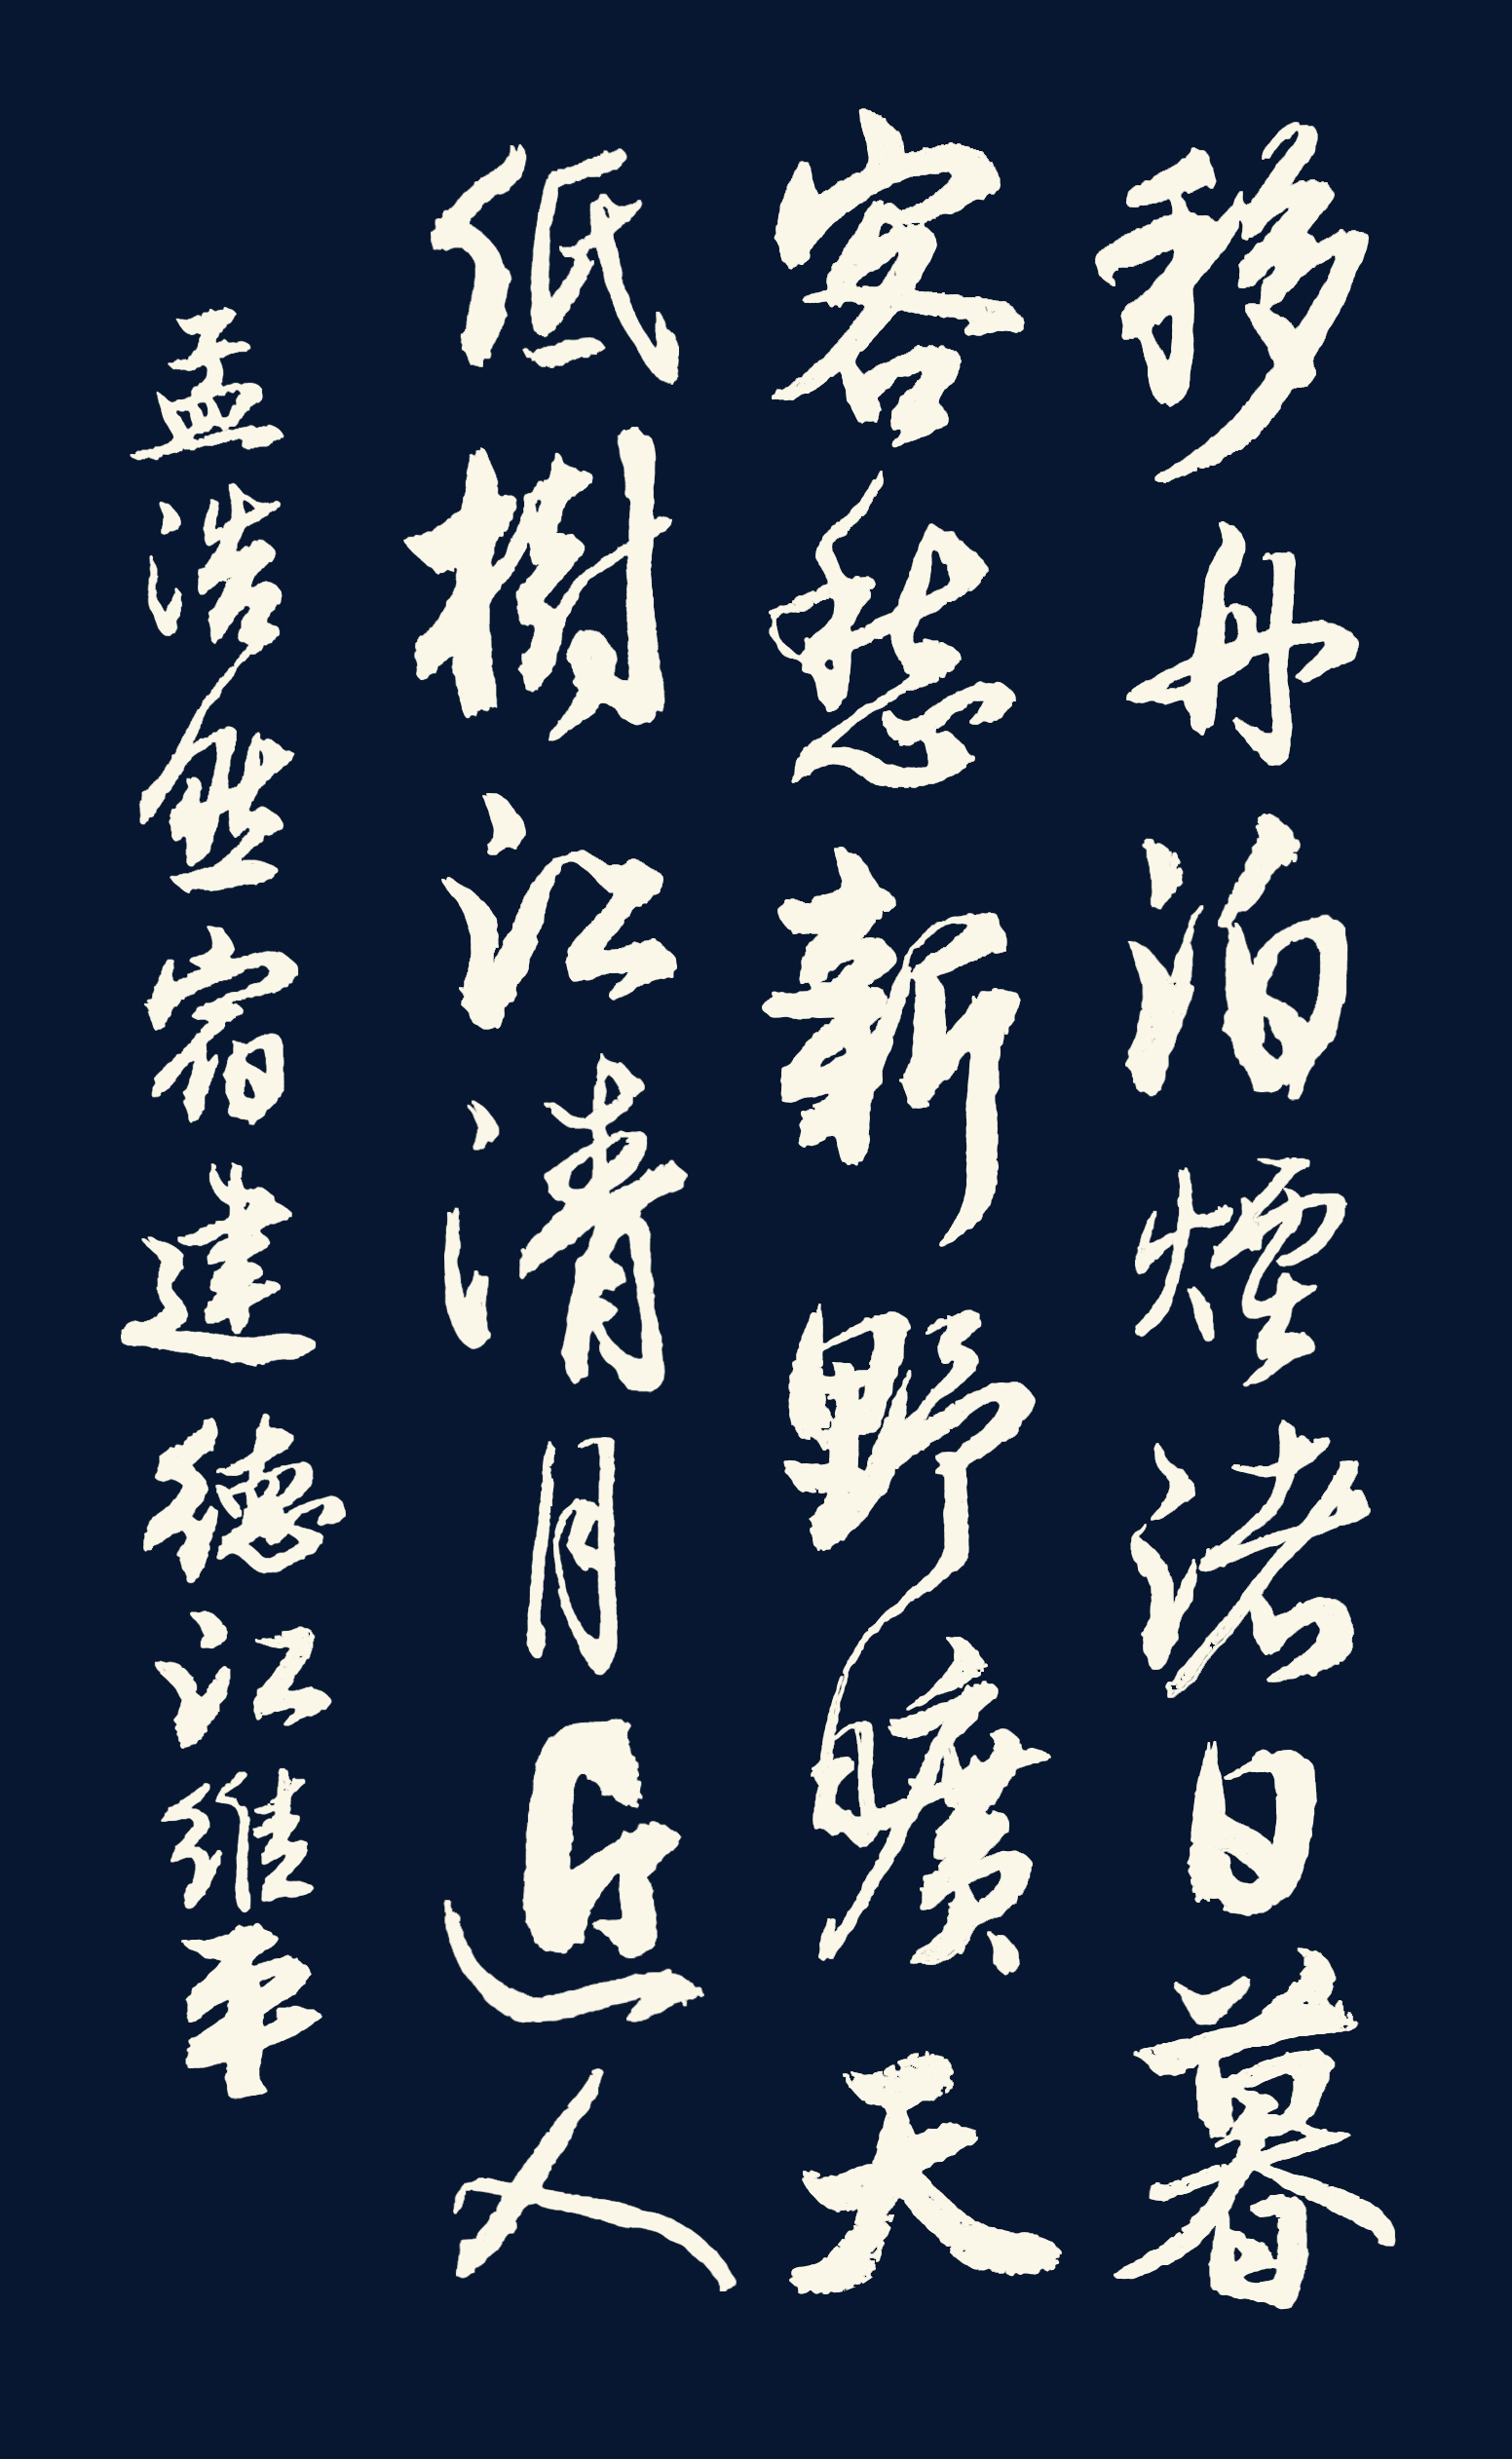 移舟泊煙渚日暮
客愁新野曠天
低樹江清月近人
孟浩然宿建德江